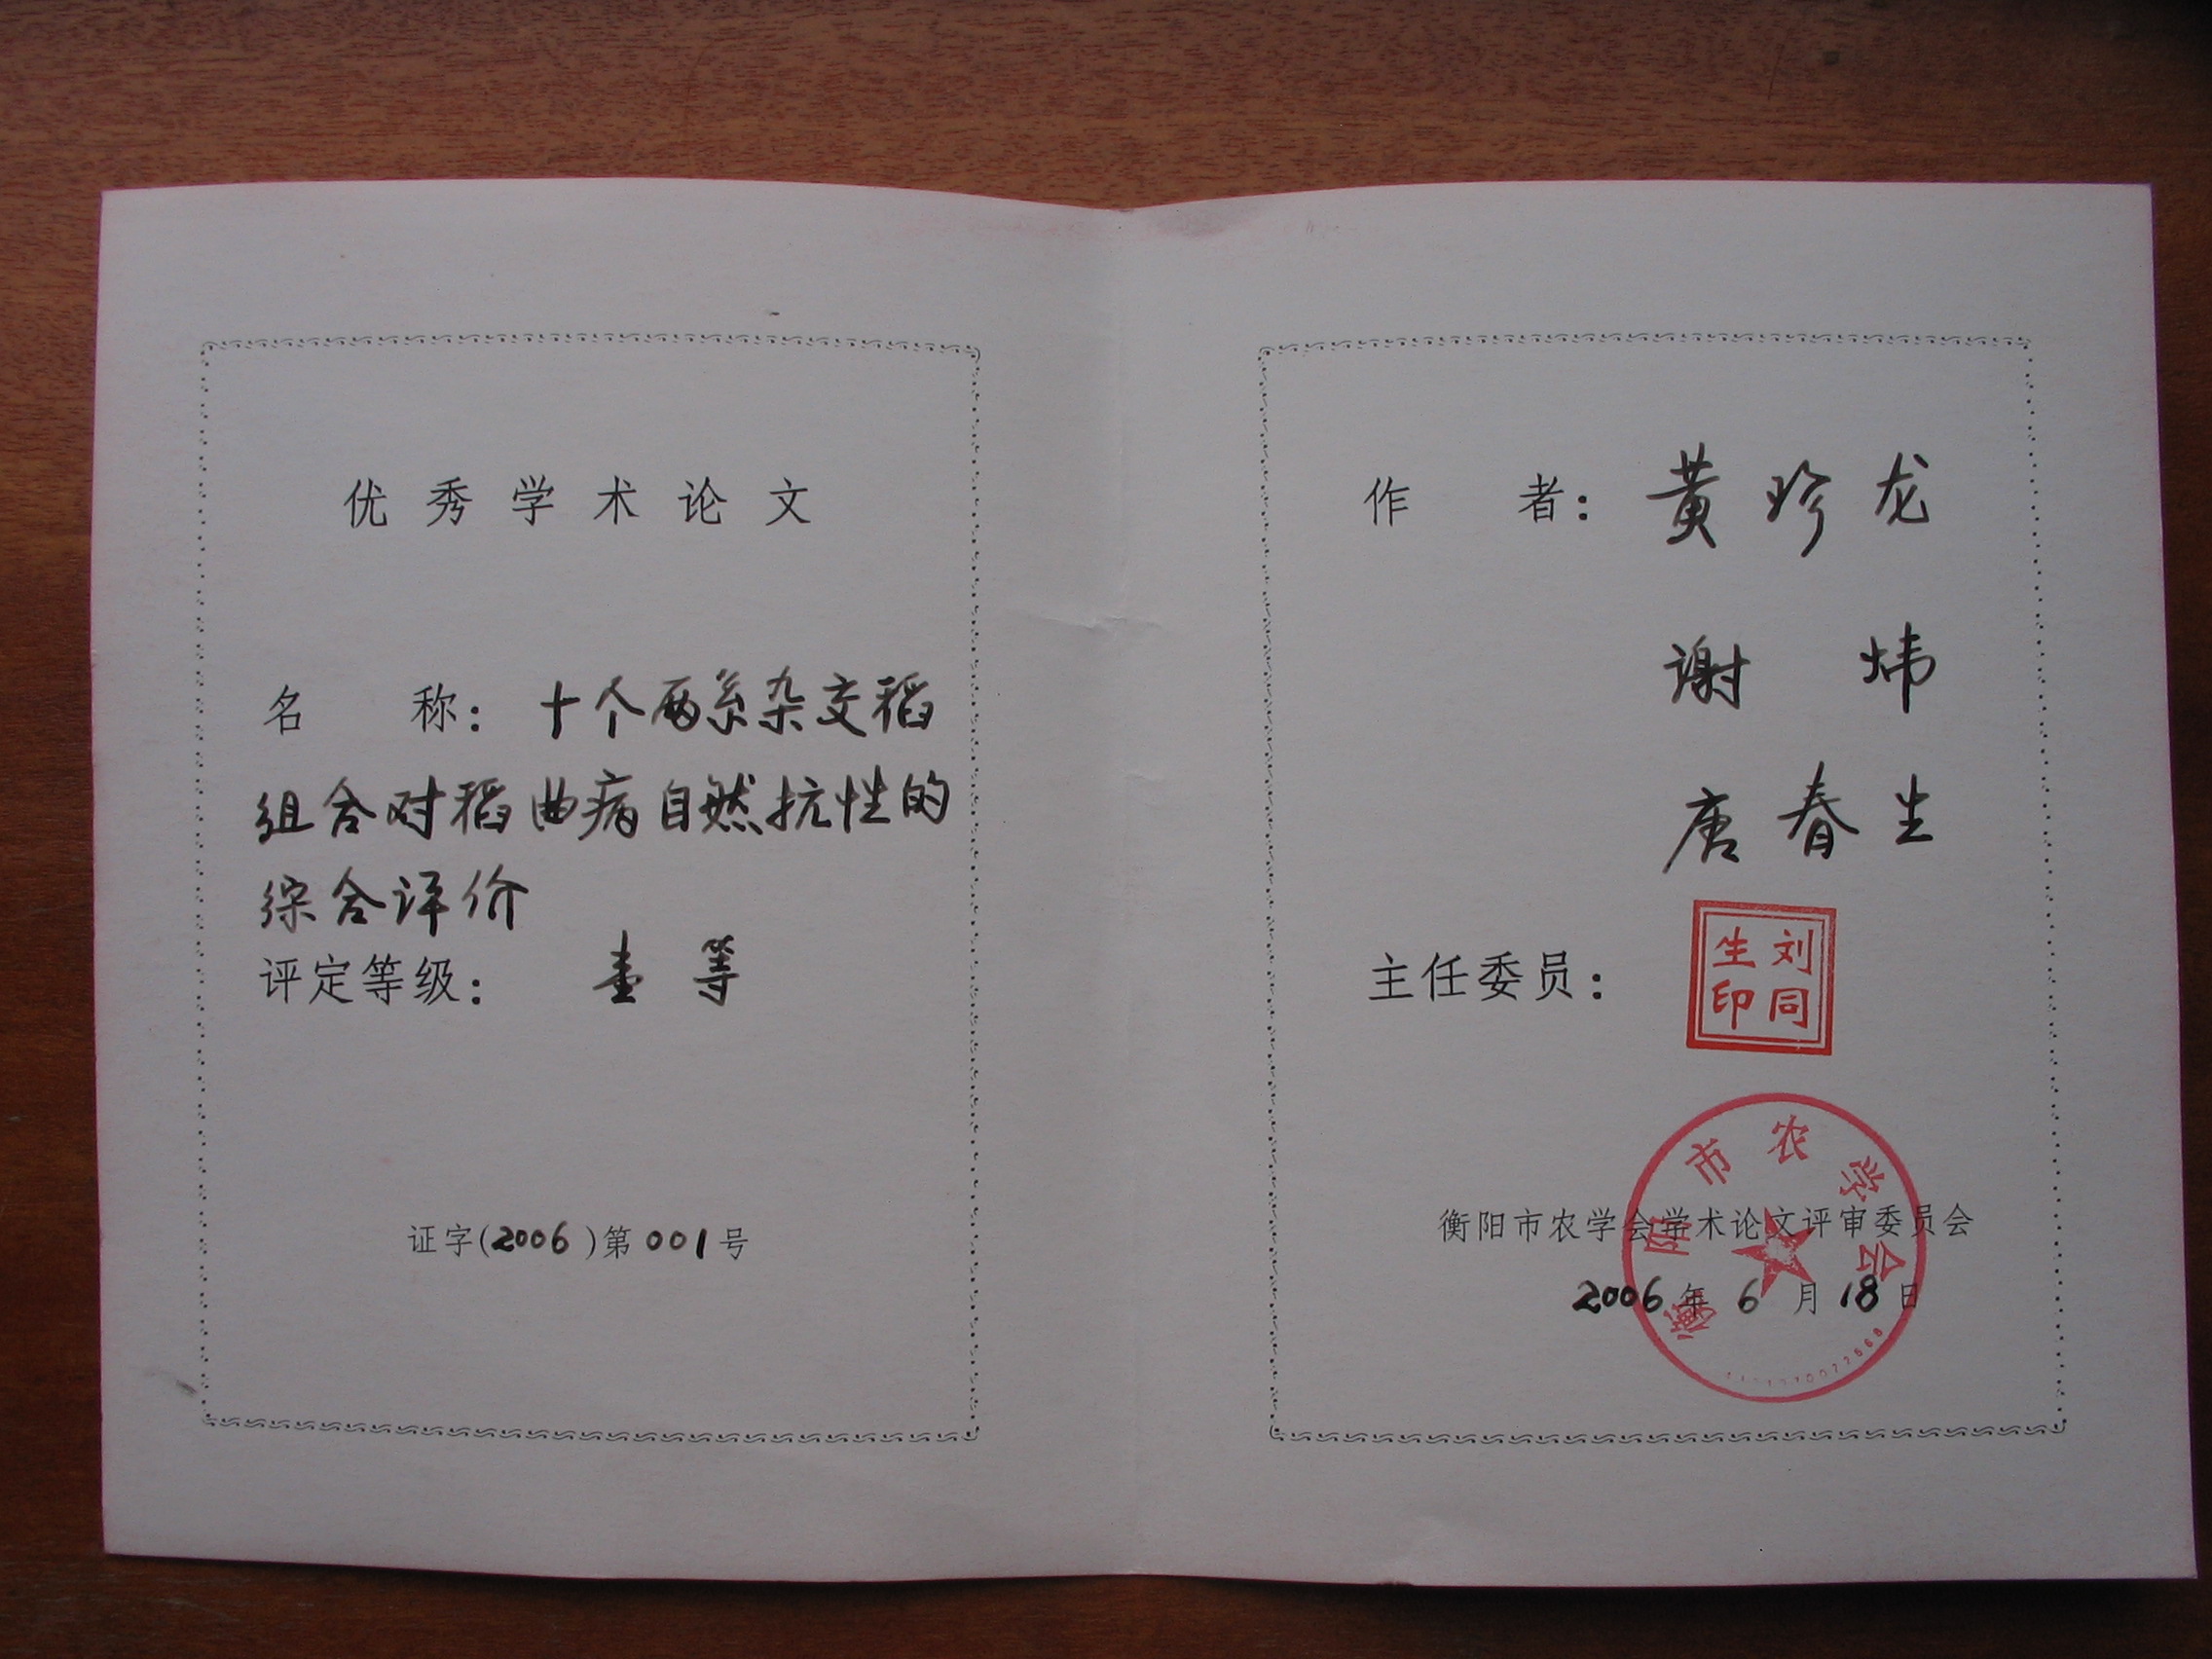 优秀学术论文
名 称：十个两系杂交稻
组合对稻曲病自然抗性的
综合评价
评定等级： 壹等
证字(2006)第001号
作 者：黄珍龙
谢 炜
唐春生
主任委员：
刘同生印
衡阳市农学会学术论文评审委员会
2006年6月18日
衡阳市农学会